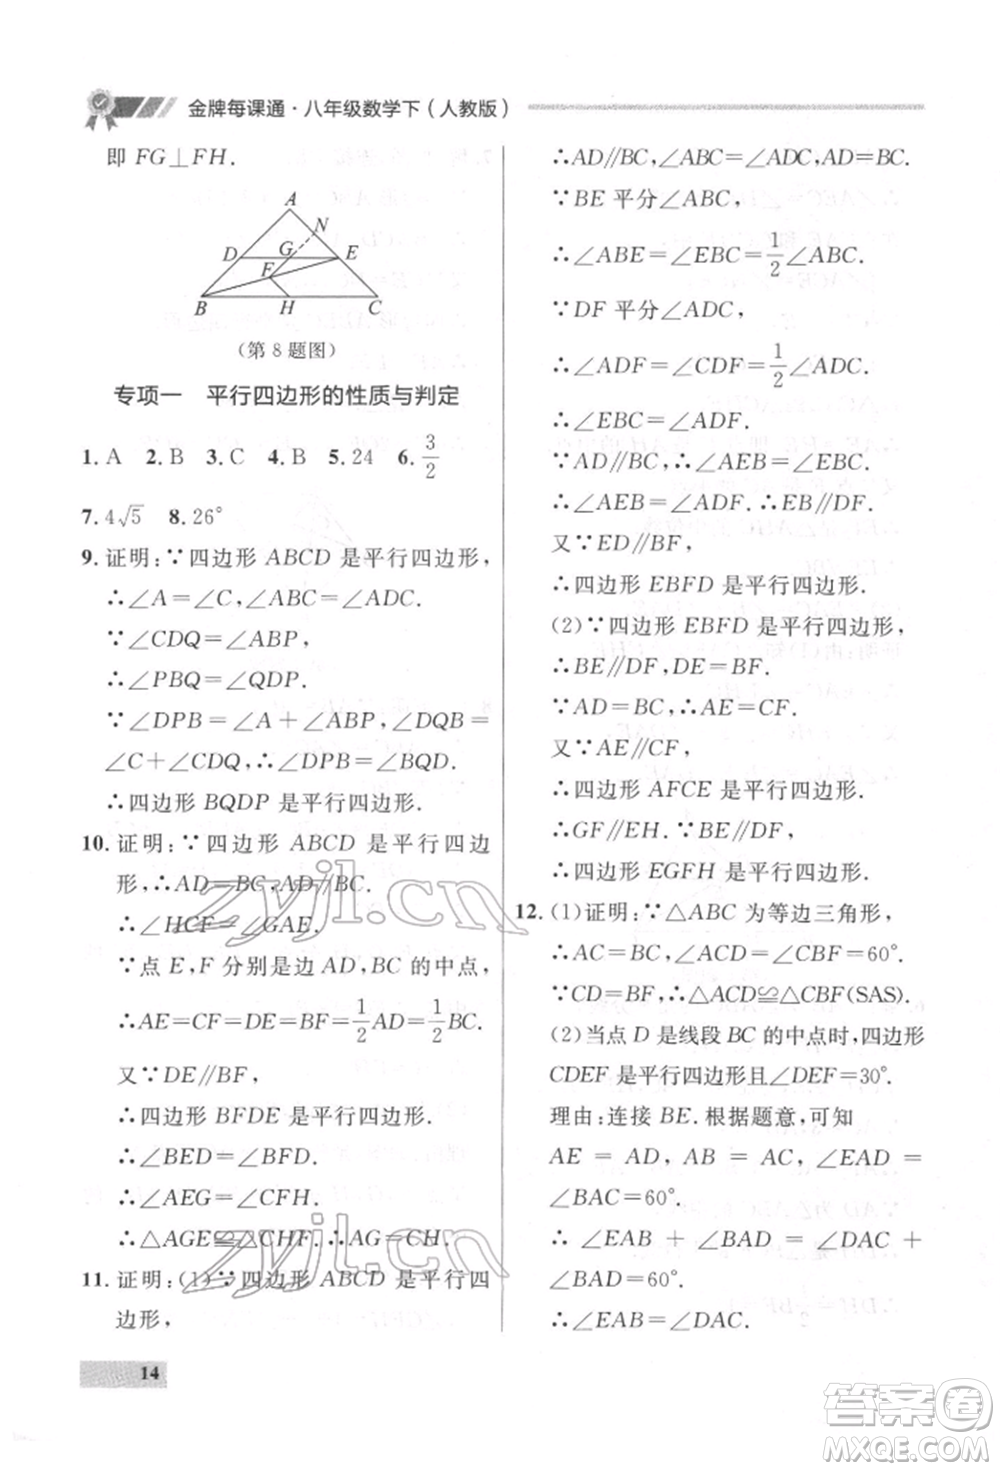 金牌每课通·八年级数学下（人教版）
即 FG⊥FH.
A
N
D
G
E
F
B
H
C
(第 8 题图)
专项一 平行四边形的性质与判定
1. A 2. B 3. C 4. B 5. 24 6. 3/2
7. 4√5 8. 26°
9. 证明:∵四边形 ABCD 是平行四边形,
∴∠A=∠C,∠ABC=∠ADC.
∵∠CDQ=∠ABP,
∴∠PBQ=∠QDP.
∵∠DPB=∠A+∠ABP,∠DQB=
∠C+∠CDQ,∴∠DPB=∠BQD.
∴四边形 BQDP 是平行四边形.
10. 证明:∵四边形 ABCD 是平行四边
形,∴AD=BC,AD∥BC.
∴∠HCF=∠GAE.
∵点 E,F 分别是边 AD,BC 的中点,
∴AE=CF=DE=BF=1/2AD=1/2BC.
又∵DE∥BF,
∴四边形 BFDE 是平行四边形.
∴∠BED=∠BFD.
∴∠AEG=∠CFH.
∴△AGE≌△CHF.∴AG=CH.
11. 证明:(1)∵四边形 ABCD 是平行四
边形,
∴AD∥BC,∠ABC=∠ADC,AD=BC.
∵BE 平分∠ABC,
∴∠ABE=∠EBC=1/2∠ABC.
∵DF 平分∠ADC,
∴∠ADF=∠CDF=1/2∠ADC.
∴∠EBC=∠ADF.
∵AD∥BC,∴∠AEB=∠EBC.
∴∠AEB=∠ADF.∴EB∥DF.
又∵ED∥BF,
∴四边形 EBFD 是平行四边形.
(2)∵四边形 EBFD 是平行四边形,
∴BE∥DF,DE=BF.
∴AD-DE=BC-BF.∴AE=CF.
又∵AE∥CF,
∴四边形 AFCE 是平行四边形.
∴GF∥EH.∵BE∥DF,
∴四边形 EGFH 是平行四边形.
12. (1)证明:∵△ABC 为等边三角形,
∴AC=BC,∠ACD=∠CBF=60°.
∵CD=BF,∴△ACD≌△CBF(SAS).
(2)当点 D 是线段 BC 的中点时,四边形
CDEF 是平行四边形且∠DEF=30°.
理由:连接 BE. 根据题意,可知
AE = AD, AB = AC, ∠EAD =
∠BAC=60°.
∴∠EAB + ∠BAD = ∠DAC +
∠BAD=60°.
∴∠EAB=∠DAC.
14
zyjl.cn
zyjl.cn
答案圈
MXQE.COM